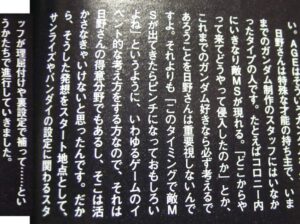 い。AGE
日野さんは特殊な才能の持ち主で、いま
までのガンダム制作のスタッフにはいなか
ったタイプの人です。たとえばコロニー内
にいきなり敵MSが現れる。「どこからや
って来てどうやって侵入したのか」とか、
これまでのガンダム好きなら必ず考えるで
あろうことを日野さんは重要視しないんで
すよ。それよりも「このタイミングで敵M
Sが出てきたらピンチになっておもしろい
よね」というように、いわゆるゲームのイ
ベント的な考え方をする方なので、それは
日野さんの得意分野でもあるし、そこは活
かさなきゃいけないと思ったんです。だか
ら、そうした発想をスタート地点として、
サンライズやバンダイの設定に関わるスタ
ッフが理屈付けや裏設定で補って……とい
うかたちで進行していきました。